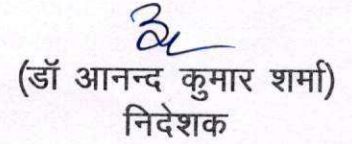 (डॉ आनन्द कुमार शर्मा)
निदेशक